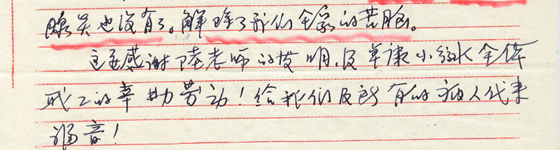 腺炎也没有了。解除了我们全家的苦恼。
主要感谢陆老师的发明、及华康小 全体
职工的辛勤劳动！给我们及所有的病人代来
福音！